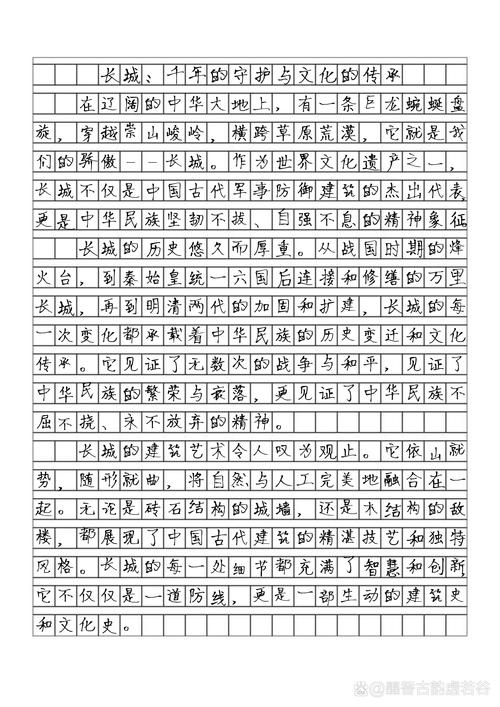 长城、千年的守护与文化的传承
在辽阔的中华大地上，有一条巨龙蜿蜒盘
旋，穿越崇山峻岭，横跨草原荒漠，它就是我
们的骄傲——长城。作为世界文化遗产之一，
长城不仅是中国古代军事防御建筑的杰出代表，
更是中华民族坚韧不拔、自强不息的精神象征
长城的历史悠久而厚重。从战国时期的烽
火台，到秦始皇统一六国后连接和修缮的万里
长城，再到明清两代的加固和扩建，长城的每
一次变化都承载着中华民族的历史变迁和文化
传承。它见证了无数次的战争与和平，见证了
中华民族的繁荣与衰落，更见证了中华民族不
屈不挠、永不放弃的精神。
长城的建筑艺术令人叹为观止。它依山就
势，随形就曲，将自然与人工完美地融合在一
起。无论是砖石结构的城墙，还是木结构的敌
楼，都展现了中国古代建筑的精湛技艺和独特
风格。长城的每一处细节都充满了智慧和创新，
它不仅仅是一道防线，更是一部生动的建筑史
和文化史。